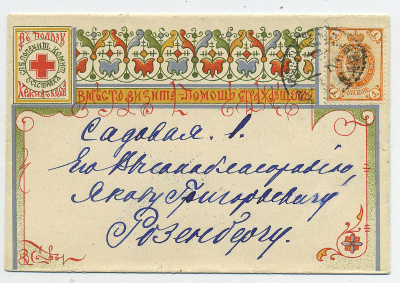 Въ пользу
попечит. комит.
сестеръ
Красн. Креста
Вмѣсто визита помощь страждущимъ
Садовая 1.
Его Высокоблагородію,
Якову Григорьевичу
Розенбергу.